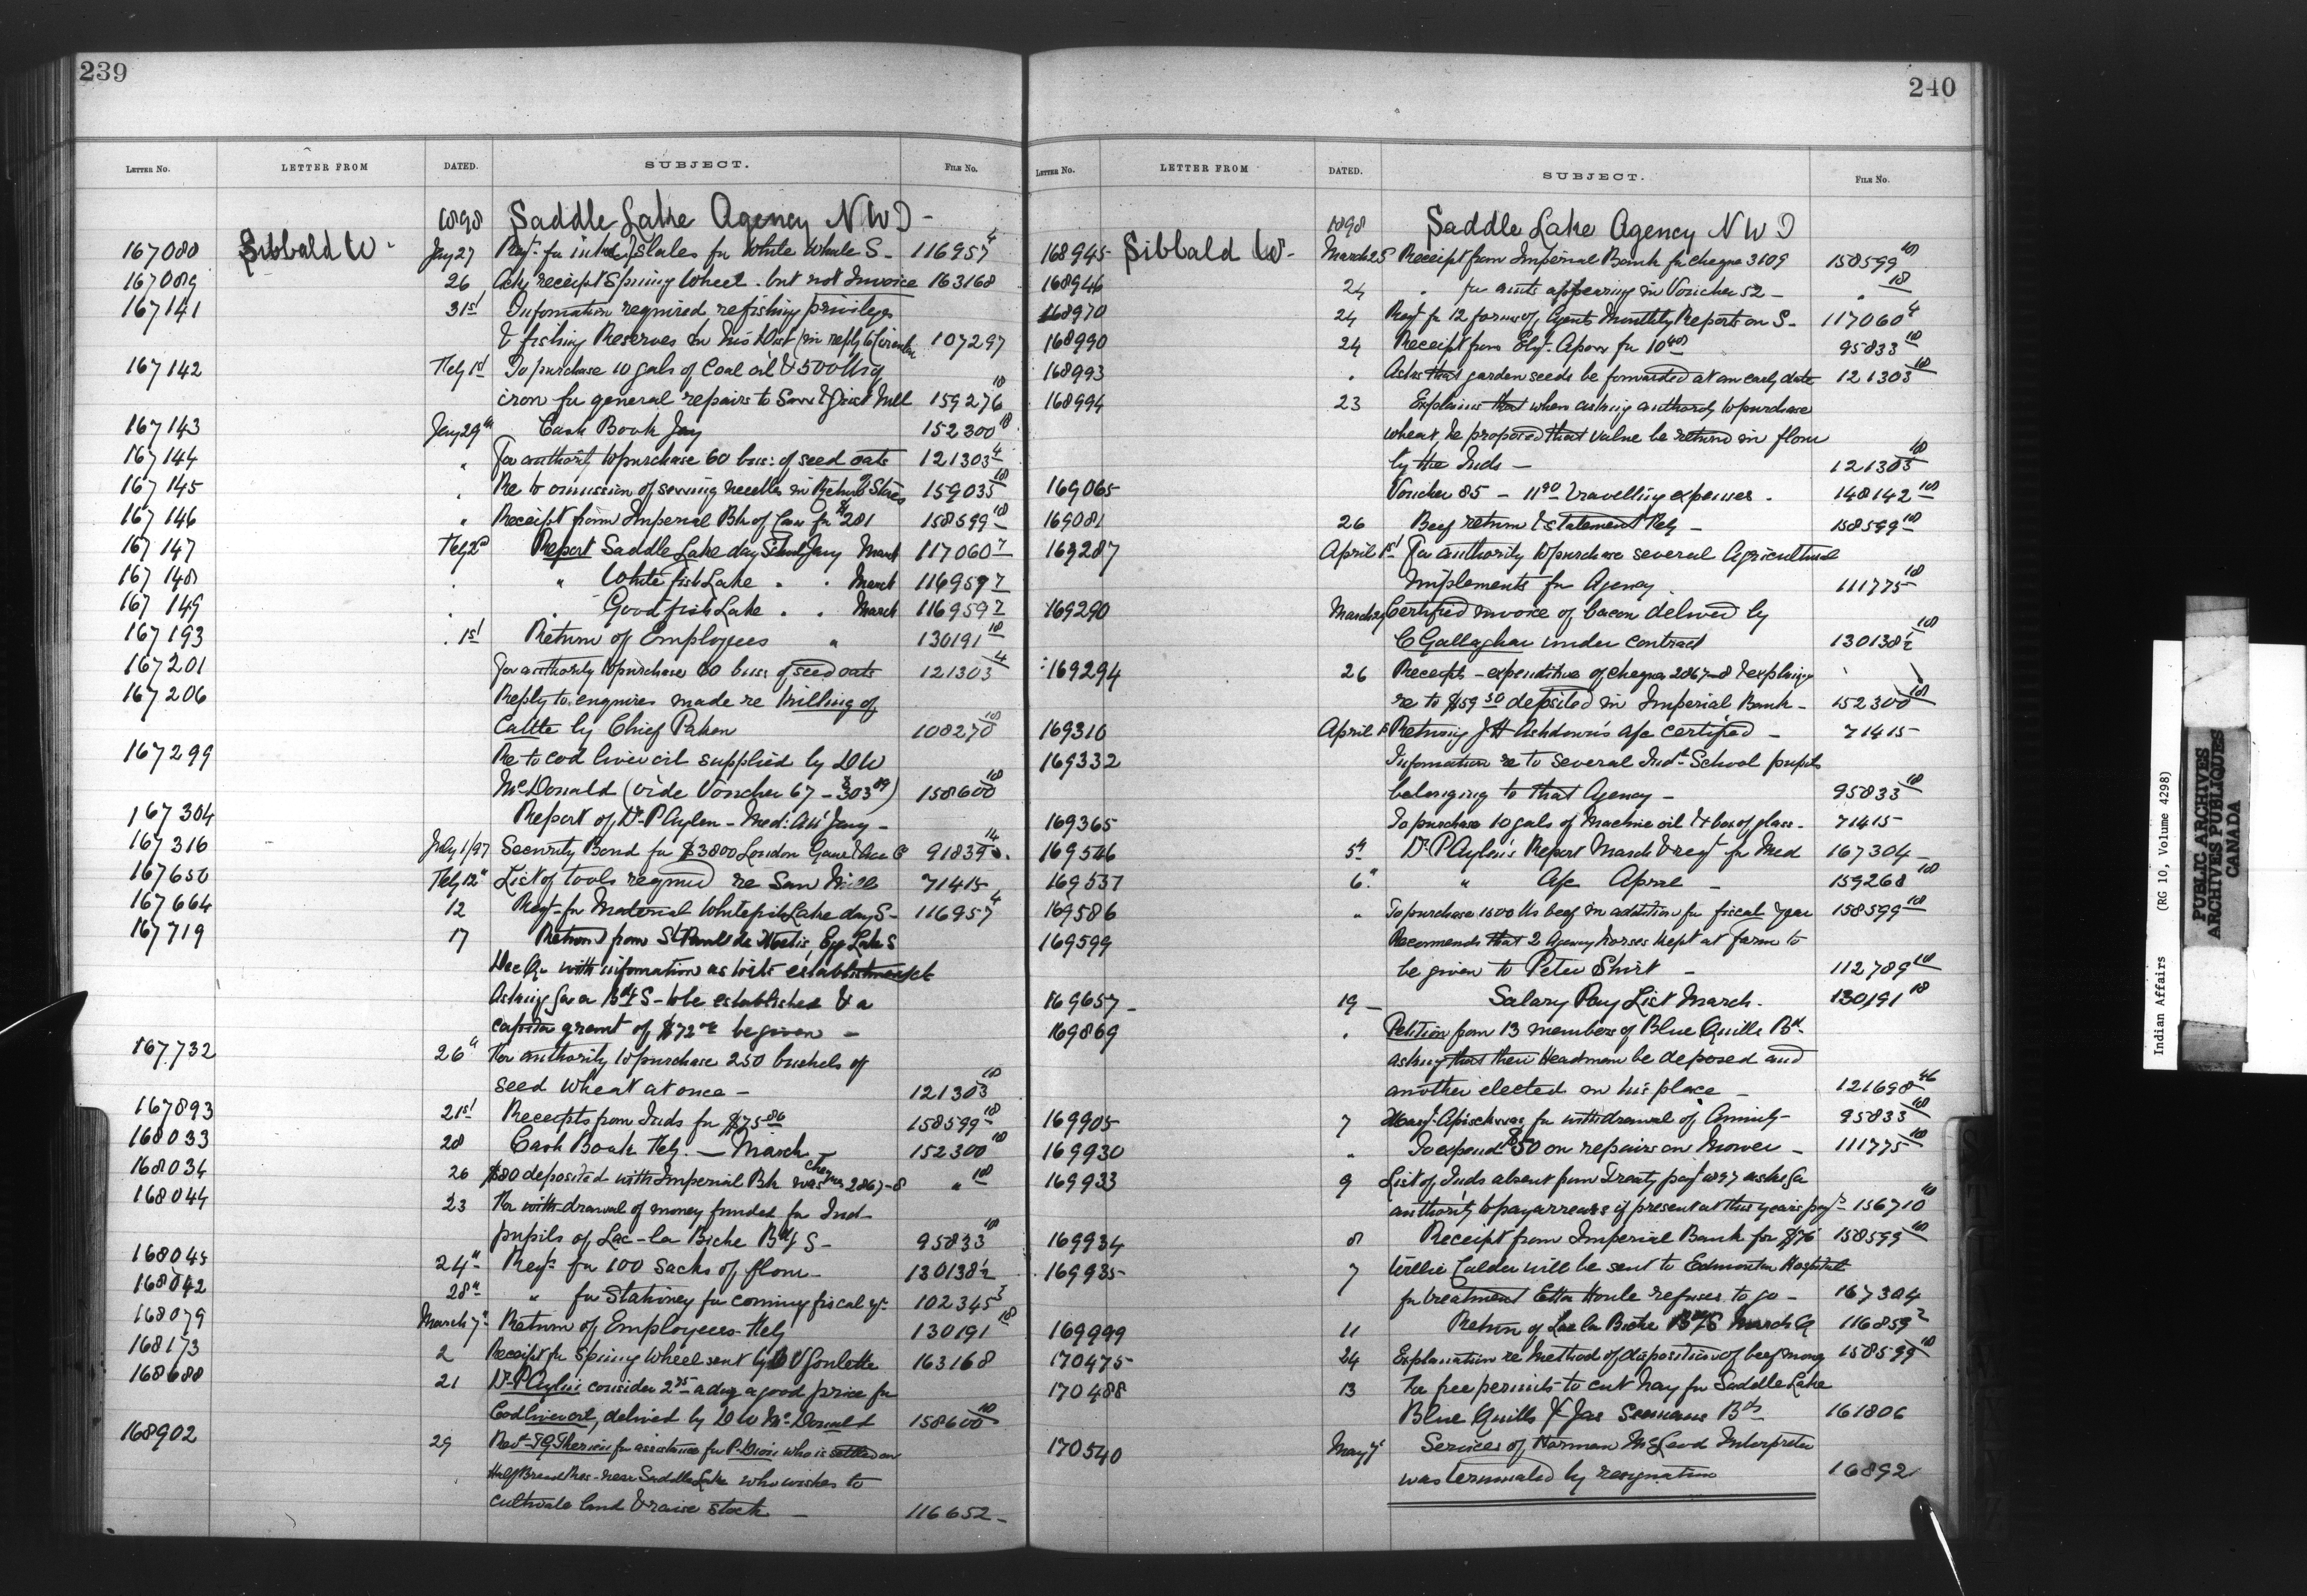 239
LETTER NO. LETTER FROM DATED. SUBJECT. FILE NO.
1898 Saddle Lake Agency N W T -
167080 Sibbald W - Jany 27 Reqn. for Slates for White Whale S - 116957 4
167089 26 Ackg receipt Spining Wheel. but not Invoice 163168
167141 31st Information required re fishing privileges
& fishing Reserves in his Dist (in reply to Circular 107297
167142 Feby 1st To purchase 10 gals of Coal oil & 500 lbs
iron for general repairs to Saw & Grist Mill 159276 10
167143 Jany 29th Cash Book Jany 152300 10
167144 " For authority to purchase 60 bus: of seed oats 121303 4
167145 " Re to omission of sewing needles in Return of Stores 159035 10
167146 " Receipt from Imperial Bk of Can for $281 158599 10
167147 Feby 2d Report Saddle Lake day School Jany March 117060 7
167148 . " White fish Lake . . March 116957 7
167149 . . Good fish Lake . . March 116959 7
167193 . 1st Return of Employees " 130191 10
167201 For authority to purchase 60 bus: of seed oats 121303 4
167206 Reply to enquires made re killing of
Cattle by Chief Pakan 108270 10
167299 Re to cod liver oil supplied by D W
McDonald (vide Voucher 67 - $303 09) 158600 10
167304 Report of Dr P Aylen - Med: Att Jany -
167316 July 1/97 Security Bond for $3800 London Guar & Acc Co 91839 14
167650 Feby 12th List of tools required re Saw Mill 71415
167664 12 Reqn - for Material Whitefish Lake day S - 116957 4
167719 17 Return from St Paul de Metis Egg Lake S
Dec Qr with information as to its establishment &
Asking for a Bdg S - to be established & a
capita grant of $72 00 be given -
167732 26th For authority to purchase 250 bushels of
seed wheat at once - 121303 10
167893 21st Receipts from Inds for $75 86 158599 10
168033 28 Cash Book Feby. - March - 152300 10
168034 26 $80 deposited with Imperial Bk was Cheques 2867-8 " 10
168044 23 For withdrawal of money funded for Ind
pupils of Lac-la Biche Bdg S - 95833 10
168045 24th Reqn for 100 Sacks of flour - 130138½
168042 28th " for Stationey for coming fiscal yr 102345 3
168079 March 7th Return of Employees Feby 130191 10
168173 2 Receipt for Spining Wheel sent by D V Goulette 163168
168688 21 Dr P Aylen consider 2 75 a doz a good price for
Cod liver oil, delivered by D W McDonald 158600 10
168902 29 Revd for assistance for P. Dion who is settled on
Half Breed Res - near Saddle Lake who wishes to
cultivate land & raise stock - 116652 -
240
LETTER NO. LETTER FROM DATED. SUBJECT. FILE NO.
1898 Saddle Lake Agency N W T
168945 Sibbald W - March 25 Receipt from Imperial Bank for cheque 3109 158599 10
168946 24 . for amts appearing in Voucher 52 - . 10
168970 24 Reqn for 12 forms of Agents Monthly Reports on S - 117060 4
168990 24 Receipt from for 10 00 95833 10
168993 . Asks that garden seeds be forwarded at an early date 121303 10
168994 23 Explains that when asking authority to purchase
wheat, he proposed that value be returned in flour
by the Inds - 121303 10
169065 Voucher 85 - 11 90 travelling expenses - 148142 10
169081 26 Beef return & statement Feby - 158599 10
169287 April 1st For authority to purchase several Agricultural
Implements for Agency. 111775 10
169290 March 29 Certified invoice of bacon delivered by
C Gallagher under contract 130138½ 10
169294 26 Receipts - expenditure of cheques 2867-8 & explains
re to $159 50 deposited in Imperial Bank - 152300 10
169310 April Returning J H Ashdown's a/c certified - 71415
169332 Information re to several Indl. School pupils
belonging to that Agency - 95833 10
169365 To purchase 10 gals of Machine oil & box of glass - 71415
169546 5th Dr P Aylen's Report March & reqn for Med 167304 -
169557 6. " a/c April - 159268 10
169586 " To purchase 1500 lbs beef in addition for fiscal year 158599 10
169599 Recommends that 2 Agency horses kept at farm to
be given to Peter Shirt - 112789 10
169657 - 19 - Salary Pay List March. 130191 10
169869 . Petition from 13 members of Blue Quills Bd.
asking that their Headman be deposed and
another elected in his place - 121698 46
169905 7 for withdrawal of Annuity - 95833 10
169930 " To expend $50 on repairs on Mower - 111775 10
169933 9 List of Inds absent from Treaty payt 1897 asks for
authority to pay arrears if present at this years payt 156710 10
169934 8 Receipt from Imperial Bank for $76 158599 10
169935 7 Willie Calder will be sent to Edmonton Hospital
for treatment Etta Houle refuses to go - 167304
169999 11 Return of Lac la Biche Bdg S March Q 116859 2
170475 24 Explanation re Method of disposition of beef money 158599 10
170488 13 For free permits to cut hay for Saddle Lake
Blue Quills & Jas Seenums Bds 161806
170540 May 7th Services of Norman McLeod Interpreter
was terminated by resignation 16892
Indian Affairs (RG 10, Volume 4298)
PUBLIC ARCHIVES
ARCHIVES PUBLIQUES
CANADA